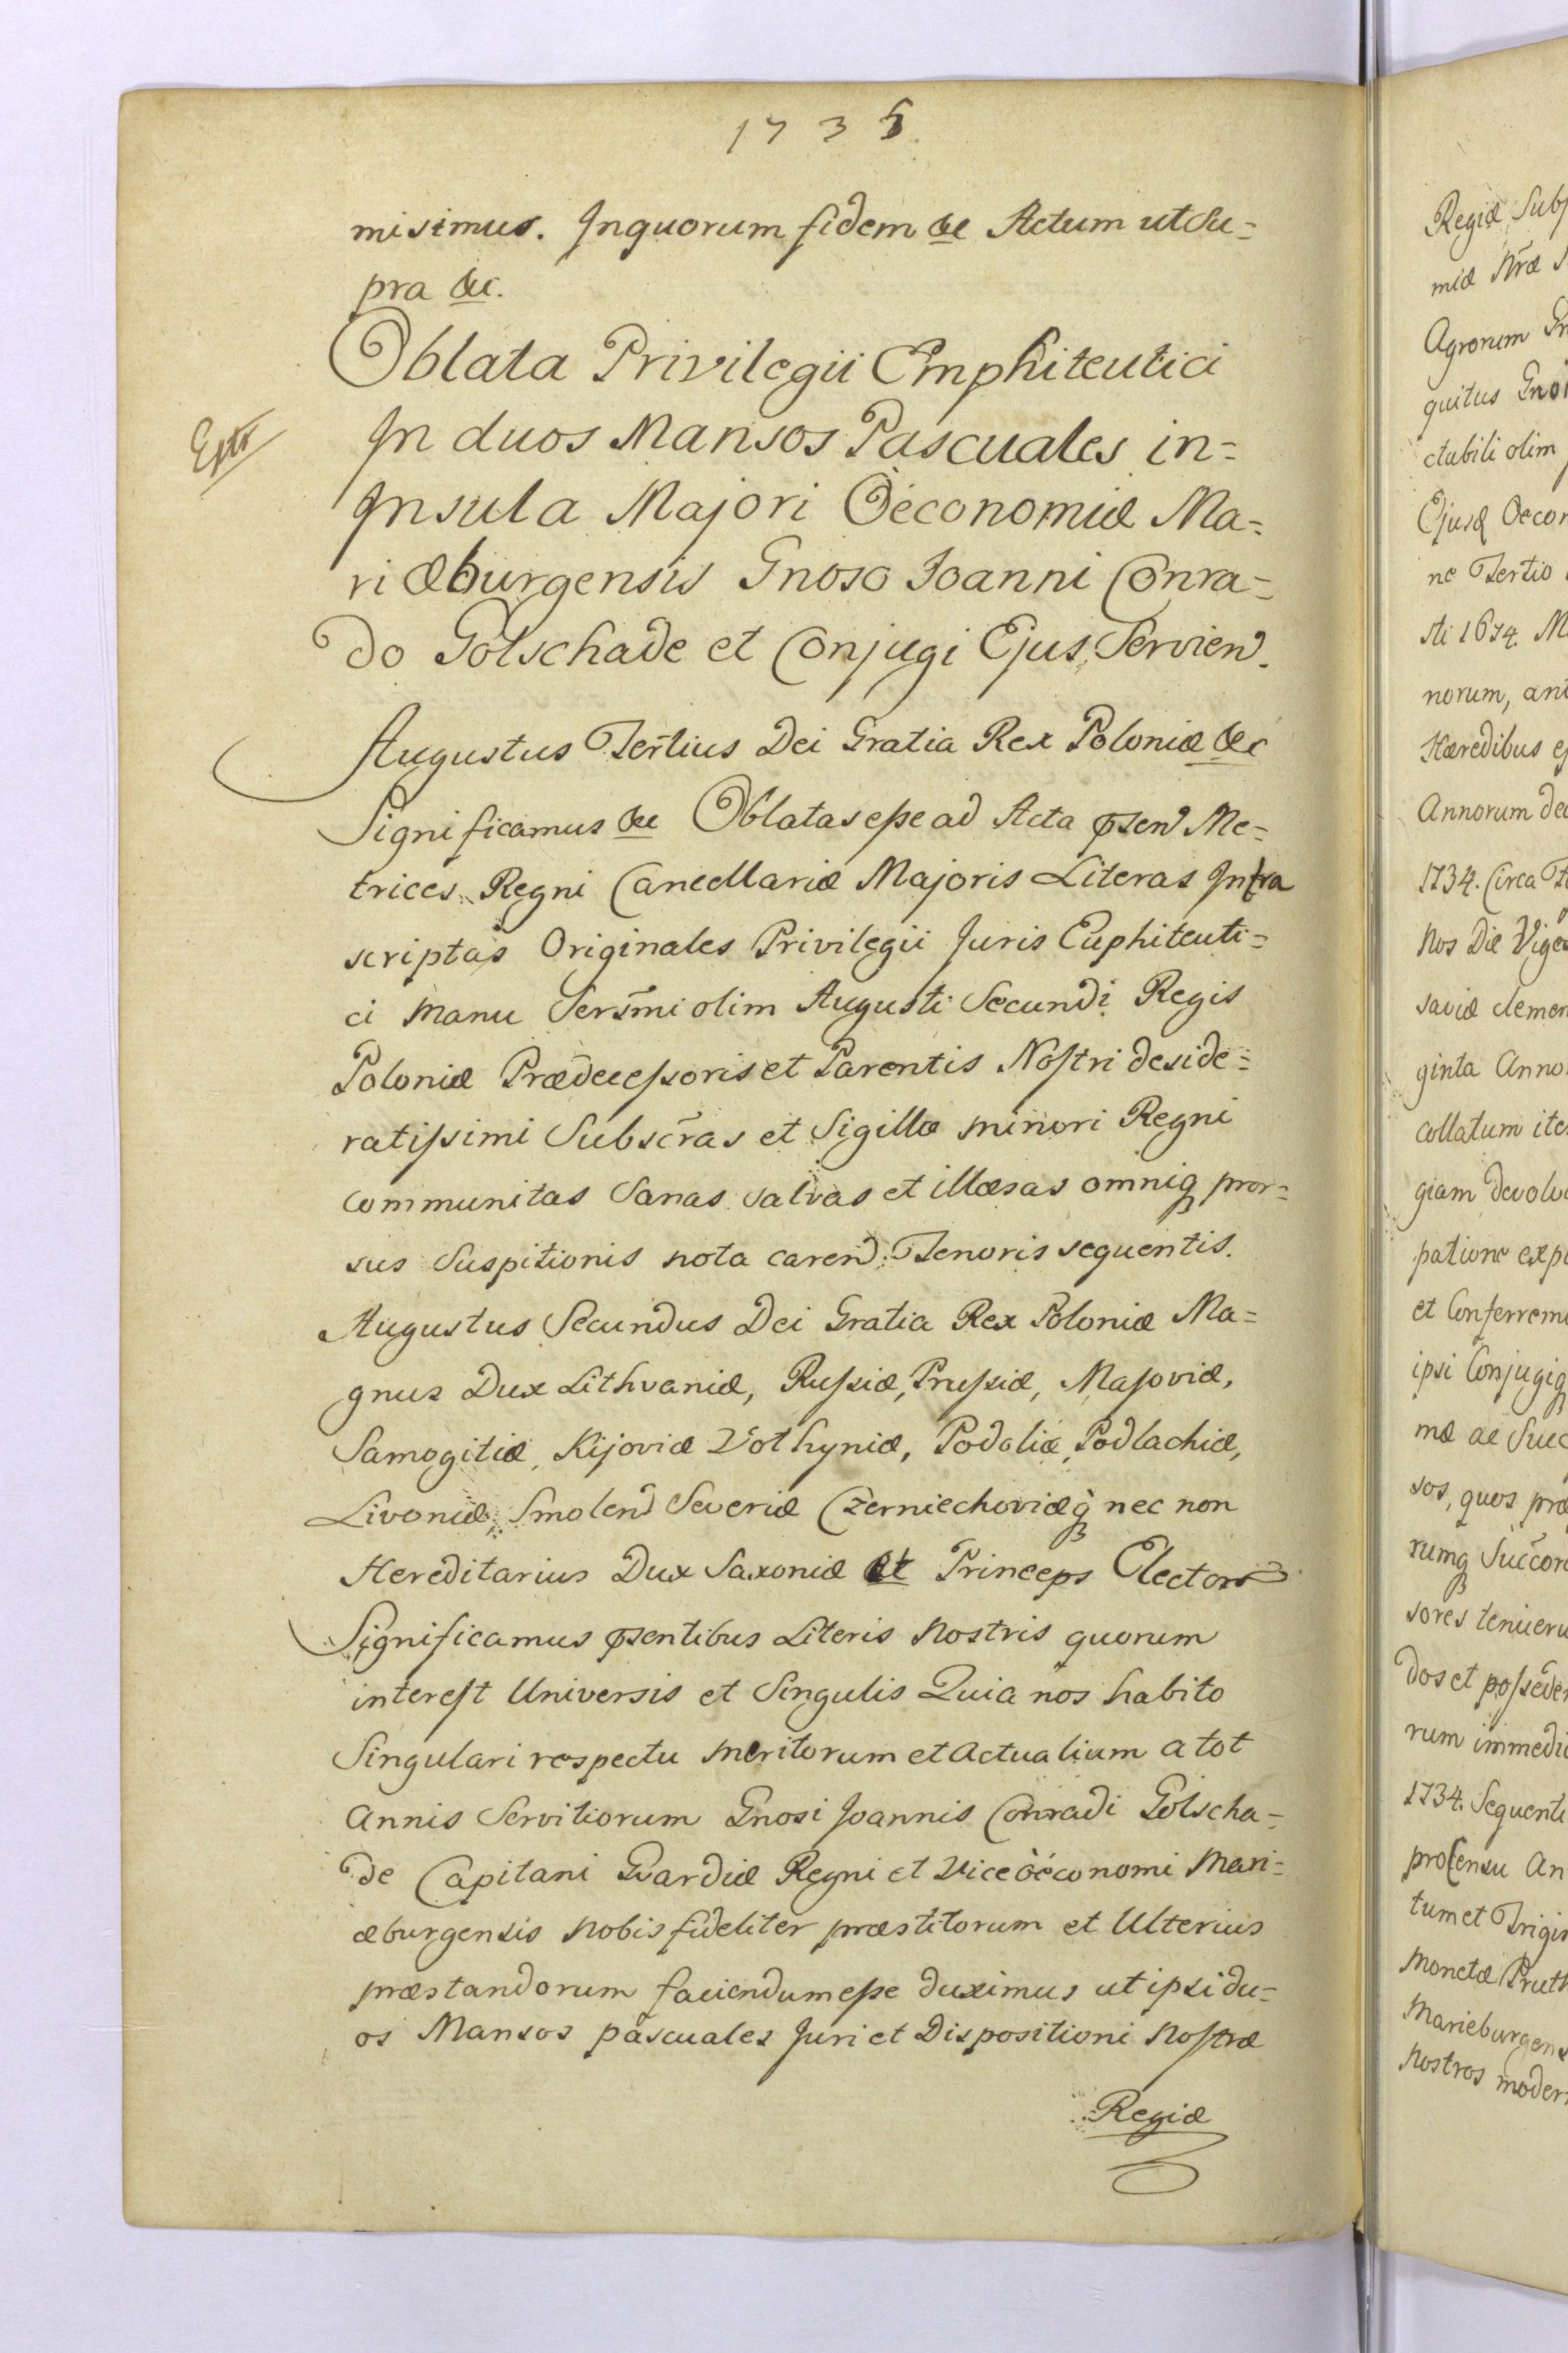 1735
misimus. Inquorum fidem &c Actum ut Su=
pra &c.
Oblata Privilegii Emphiteutici
In duos Mansos Pascuales in=
Insula Majori Oeconomiæ Ma=
riæburgensis Gnoso Joanni Conra=
do Golschade et Conjugi Ejus Servien.
Augustus Tertius Dei Gratia Rex Poloniæ &c
Significamus &c Oblatas esse ad Acta pṡen Me=
trices Regni Cancellariæ Majoris Literas Infra
scriptas Originales Privilegii Juris Euphiteuti=
ci manu Sersm̃i olim Augusti Secundi Regis
Poloniæ Prædecessoris et Parentis Nostri deside=
ratissimi Subscr̃as et Sigillo minori Regni
communitas Sanas salvas et illæsas omniq pror=
sus Suspitionis nota caren. Tenoris sequentis.
Augustus Secundus Dei Gratia Rex Poloniæ Ma=
gnus Dux Lithvaniæ, Russiæ, Prussiæ, Masoviæ,
Samogitiæ, Kijoviæ Volhyniæ, Podoliæ, Podlachiæ,
Livoniæ, Smolen Severiæ Czerniechoviæq nec non
Hereditarius Dux Saxoniæ et Princeps Elector
Significamus pṡentibus Literis Nostris quorum
interest Universis et Singulis Quia nos habito
Singulari respectu meritorum et Actualium a tot
Annis Servitiorum Gnosi Joannis Conradi Golscha=
de Capitani Gvardiæ Regni et Viceoeconomi Mari=
æburgensis Nobis fideliter præstitorum et Ulterius
præstandorum faciendum esse duximus ut ipsi du=
os Mansos pascuales Juri et Dispositioni Nostræ
Regiæ
Regiæ
miæ Nr̃æ
Agrorum
quitus
ctabili olim
Ejusq Oecon
ne Tertio
sti 1674. M
norum,
Hæredibus
Annorum
1734. Circa
Nos Die
saviæ clemen
ginta Anno
collatum
giam devolu
patione
et Conferrem
ipsi Conjugiq
mæ ac Succ
sos, quos
rumq
sores tenuer
dos et posseder
rum
1734. Sequenti
procensu An
tum et
Monetæ
Marieburgens
Nostros